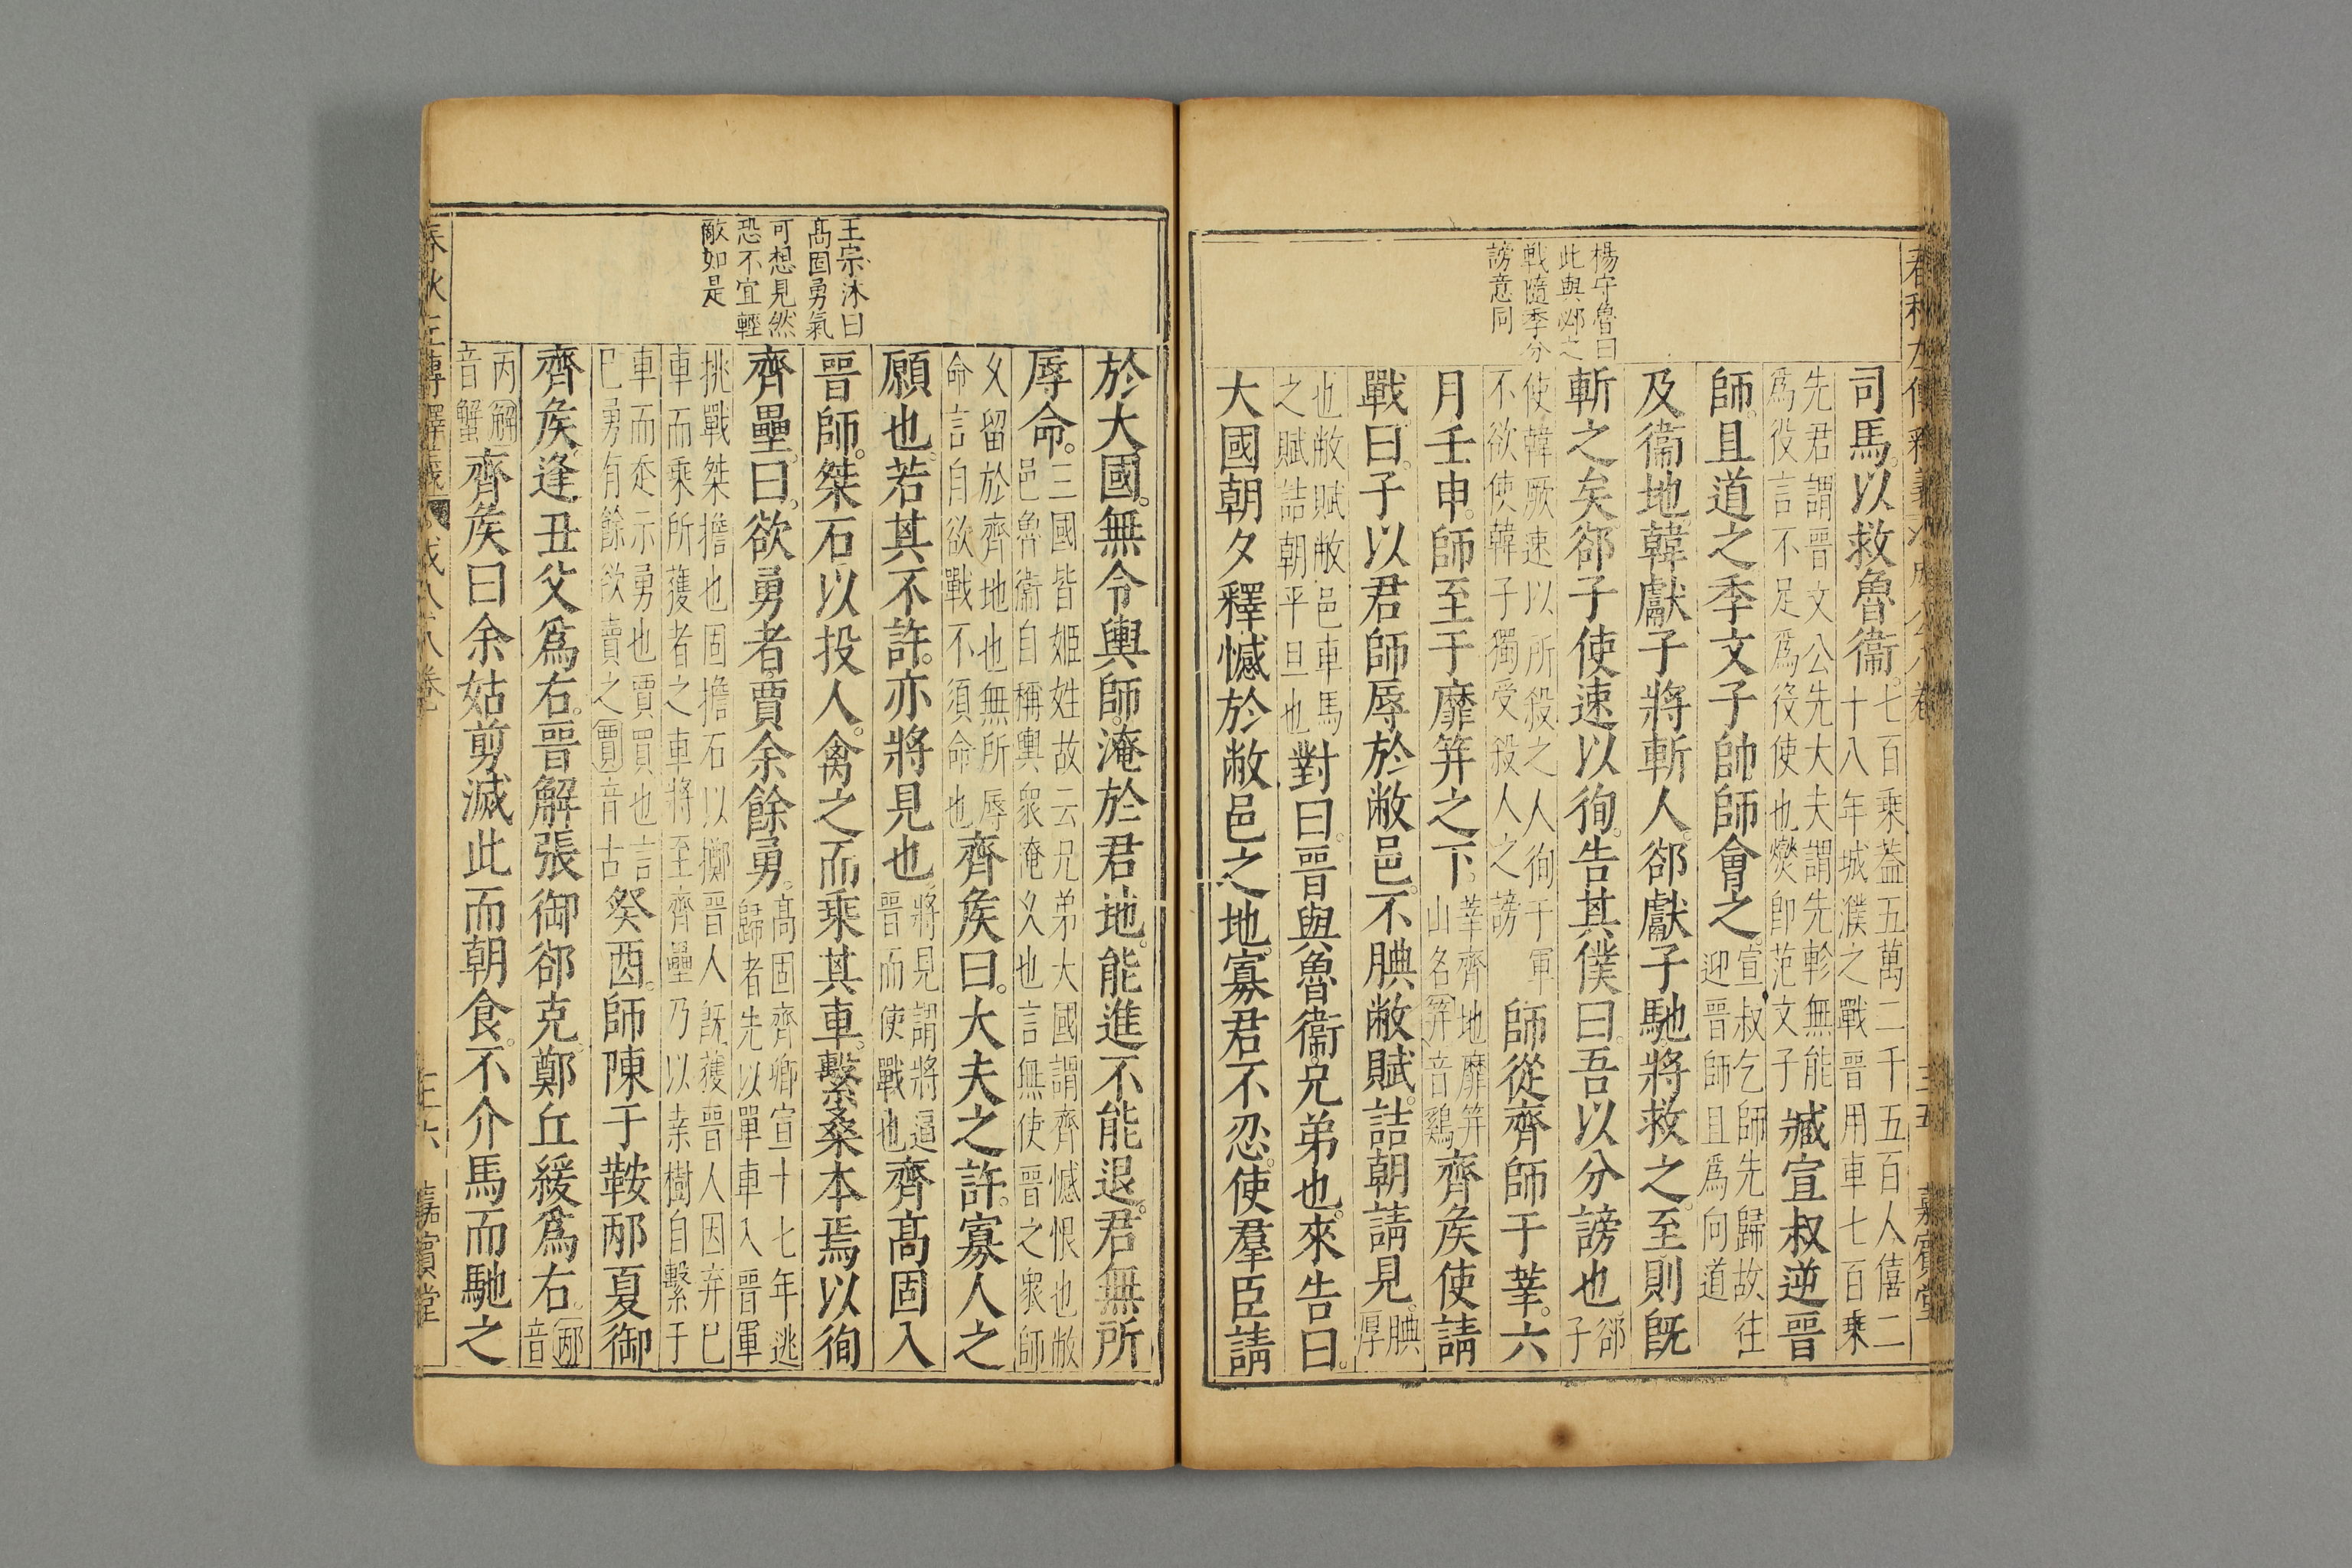 春秋左傳釋義 成公八卷 三五 嘉賓堂
楊守魯曰
此與邲之
戰隨季分
謗意同
司馬。以救魯衛。七百乘蓋五萬二千五百人僖二
十八年城濮之戰晉用車七百乘
先君謂晉文公先大夫謂先軫無能
爲役言不足爲役使也燮卽范文子臧宣叔逆晉
師。且道之季文子帥師會之。宣叔乞師先歸故往
迎晉師且爲向道
及衞地。韓獻子將斬人。郤獻子馳。將救之。至則旣
斬之矣。郤子使速以徇。告其僕曰。吾以分謗也。郤
子
使韓厥速以所殺之人徇于軍
不欲使韓子獨受殺人之謗師從齊師于莘。六
月壬申。師至于靡笄之下。莘齊地靡笄
山名笄音鷄齊矦使請
戰。曰。子以君師辱於敝邑。不腆敝賦。詰朝請見。腆
厚
也敝賦敝邑車馬
之賦詰朝平旦也對曰。晉與魯衞。兄弟也。來告曰。
大國朝夕釋憾於敝邑之地。寡君不忍。使羣臣請
王宗沐曰
高固勇氣
可想見然
恐不宜輕
敵如是
於大國。無令輿師。淹於君地。能進不能退。君無所
辱命。三國皆姬姓故云兄弟大國謂齊憾恨也敝
邑魯衞自稱輿衆淹久也言無使晉之衆師
久留於齊地也無所辱
命言自欲戰不須命也齊矦曰。大夫之許。寡人之
願也。若其不許。亦將見也。將見謂將逼
晉而使戰也齊高固入
晉師。桀石以投人。禽之而乘其車。繫桑本焉以徇
齊壘。曰。欲勇者。賈余餘勇。高固齊卿宣十七年逃
歸者先以單車入晉軍
挑戰桀擔也固擔石以擲晉人旣獲晉人因弃已
車而乘所獲者之車將至齊壘乃以桒樹自繫于
車而走示勇也賈買也言
已勇有餘欲賣之賈音古癸酉。師陳于鞍邴夏御
齊矦。逢丑父爲右。晉解張御郤克。鄭丘緩爲右。邴
音
丙解
音蟹齊矦曰余姑剪滅此而朝食。不介馬而馳之
春秋左傳釋義 成公八卷 三六 嘉賓堂